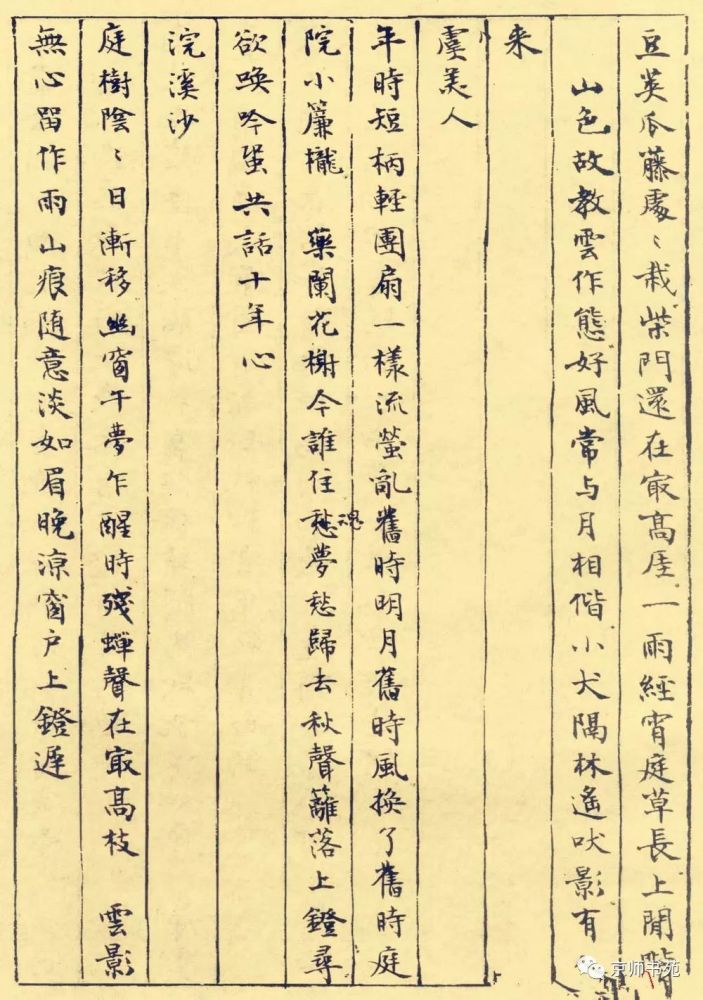 豆英瓜藤處〻栽柴門還在冣高厓一雨經宵庭草長上閒階
山色故教雲作態好風常与月相偕小犬隔林遙吠影有人
来
虞美人
年時短柄輕團扇一樣流螢亂舊時明月舊時風換了舊時庭
院小簾櫳　藥闌花榭今誰住愁夢愁歸去秋聲籬落上鐙尋
魂
欲喚吟蛩共話十年心
浣溪沙
庭樹陰〻日漸移幽窗午夢乍醒時殘蟬聲在冣高枝　雲影
無心留作雨山痕随意淡如眉晚涼窗户上鐙遲
京师书苑